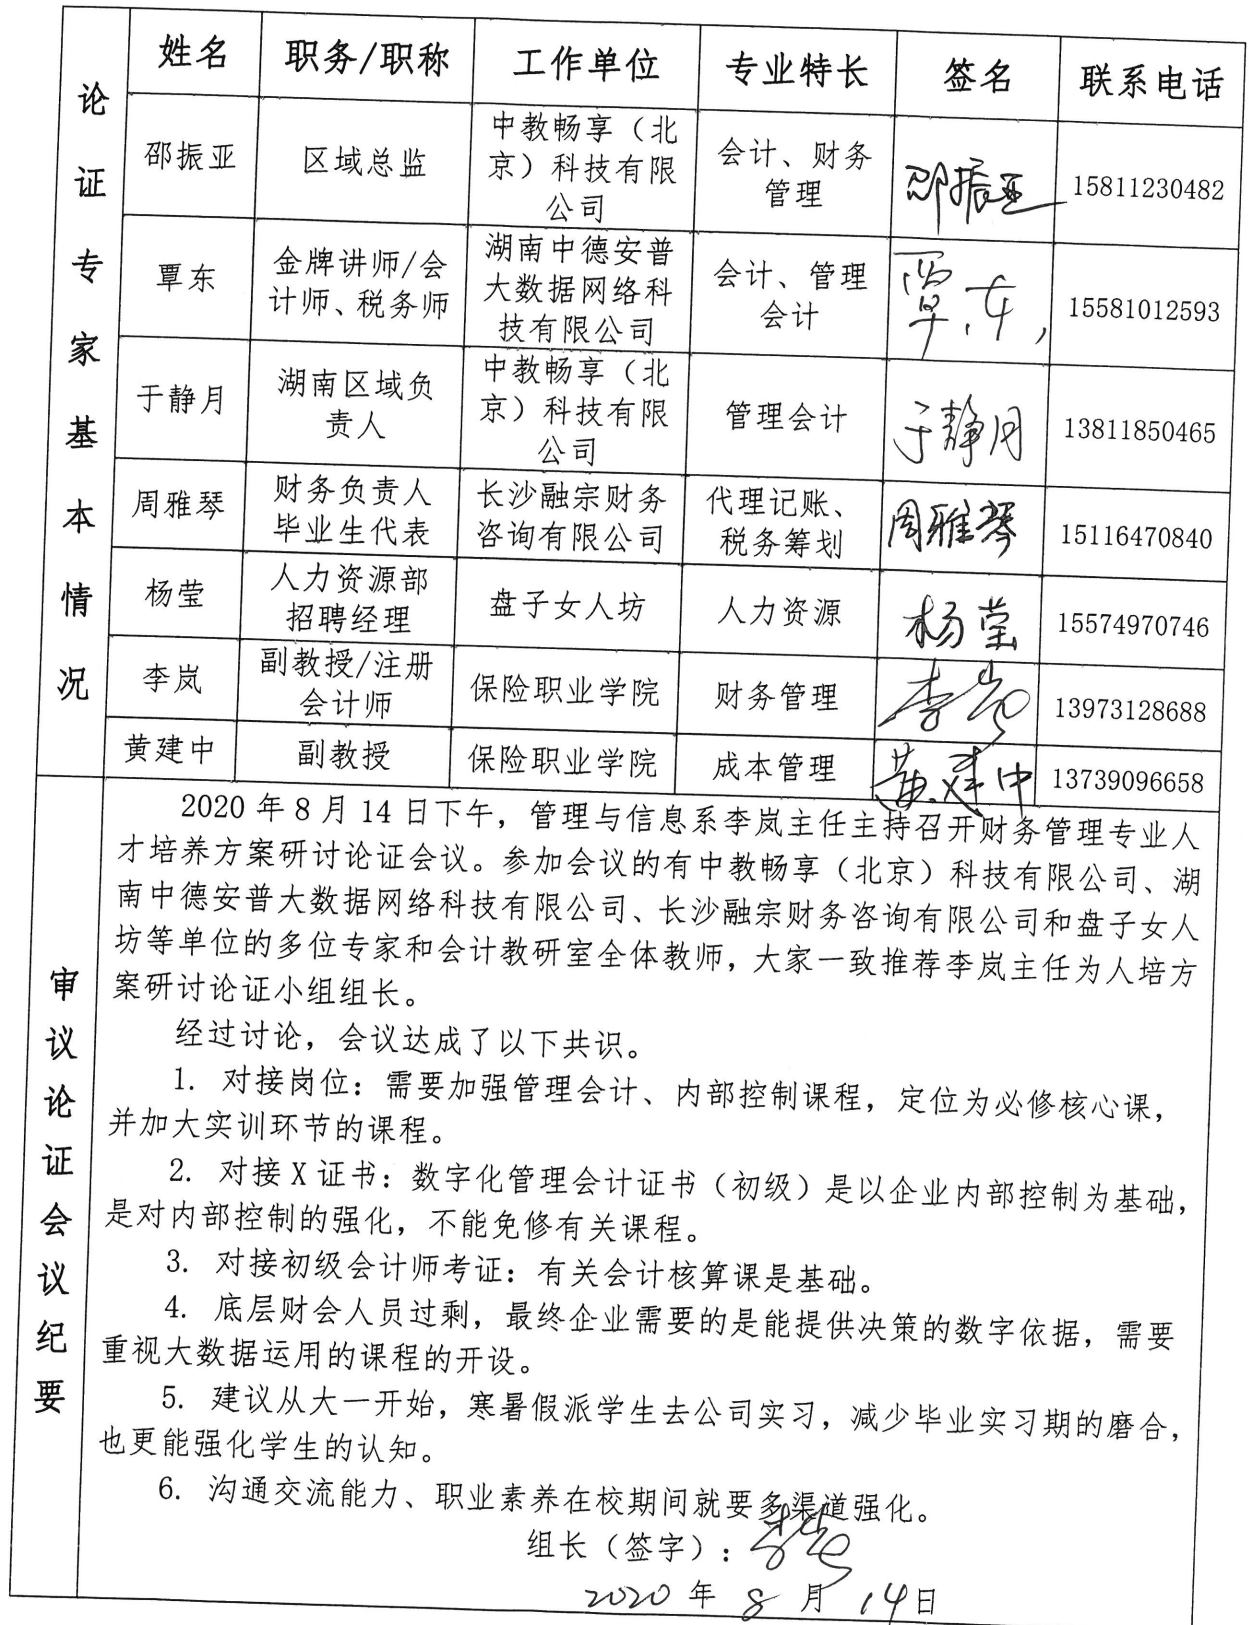 论证专家基本情况
姓名 职务/职称 工作单位 专业特长 签名 联系电话
邵振亚 区域总监 中教畅享（北 会计、财务 邵振亚 15811230482
京）科技有限 管理
公司
覃东 金牌讲师/会 湖南中德安普 会计、管理 覃东 15581012593
计师、税务师 大数据网络科 会计
技有限公司
于静月 湖南区域负 中教畅享（北 管理会计 于静月 13811850465
责人 京）科技有限
公司
周雅琴 财务负责人 长沙融宗财务 代理记账、 周雅琴 15116470840
毕业生代表 咨询有限公司 税务筹划
杨莹 人力资源部 盘子女人坊 人力资源 杨莹 15574970746
招聘经理
李岚 副教授/注册 保险职业学院 财务管理 李岚 13973128688
会计师
黄建中 副教授 保险职业学院 成本管理 黄建中 13739096658
审议论证会议纪要
2020 年 8 月 14 日下午，管理与信息系李岚主任主持召开财务管理专业人
才培养方案研讨论证会议。参加会议的有中教畅享（北京）科技有限公司、湖
南中德安普大数据网络科技有限公司、长沙融宗财务咨询有限公司和盘子女人
坊等单位的多位专家和会计教研室全体教师，大家一致推荐李岚主任为人培方
案研讨论证小组组长。
经过讨论，会议达成了以下共识。
1. 对接岗位：需要加强管理会计、内部控制课程，定位为必修核心课，
并加大实训环节的课程。
2. 对接 X 证书：数字化管理会计证书（初级）是以企业内部控制为基础，
是对内部控制的强化，不能免修有关课程。
3. 对接初级会计师考证：有关会计核算课是基础。
4. 底层财会人员过剩，最终企业需要的是能提供决策的数字依据，需要
重视大数据运用的课程的开设。
5. 建议从大一开始，寒暑假派学生去公司实习，减少毕业实习期的磨合，
也更能强化学生的认知。
6. 沟通交流能力、职业素养在校期间就要多渠道强化。
组长（签字）：李岚
2020 年 8 月 14日